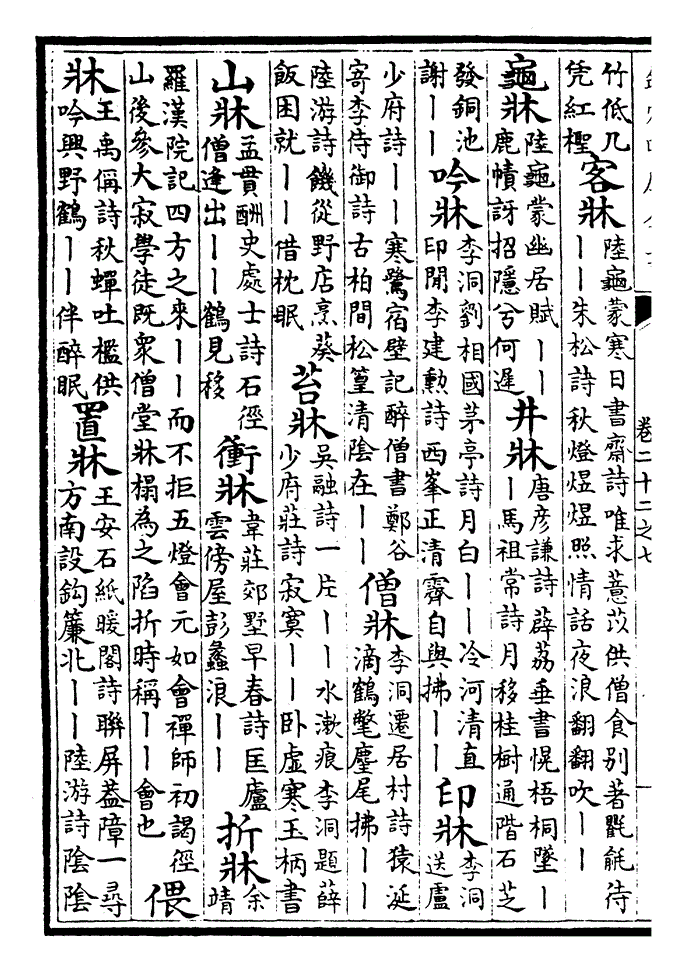 卷二十二之七
竹低几凭紅檉 客牀 陸龜蒙寒日書齋詩唯求薏苡供僧食别著氍毹待丨丨朱松詩秋燈煜煜照情話夜浪翻翻吹丨丨
龜牀 陸龜蒙幽居賦丨丨鹿幘訝招隱兮何遲 井牀 唐彦謙詩薜荔垂書幌梧桐墜丨丨馬祖常詩月移桂樹通階石芝
發銅池謝丨丨 吟牀 李洞劉相國茅亭詩月白丨丨冷河清直印閒李建勳詩西峯正清霽自與拂丨丨 印牀 李洞送盧
少府詩丨丨寒鷺宿壁記醉僧書鄭谷寄李侍御詩古柏間松篁清陰在丨丨 僧牀 李洞遷居村詩猿涎滴鶴氅麈尾拂丨丨
陸游詩饑從野店烹葵飯困就丨丨借枕眠 苔牀 吳融詩一片丨丨水漱痕李洞題薛少府莊詩寂寞丨丨卧虛寒玉柄書
山牀 孟貫酬史處士詩石徑僧逢出丨丨鶴見移 衝牀 韋莊郊墅早春詩匡廬雲傍屋彭蠡浪丨丨 折牀 余靖
羅漢院記四方之來丨丨而不拒五燈會元如會禪師初謁徑山後參大寂學徒既衆僧堂牀榻為之陷折時稱丨丨會也 偎
牀 王禹偁詩秋蟬吐檻供吟興野鶴丨丨伴醉眠 置牀 王安石紙暖閣詩聯屏葢障一尋方南設鈎簾北丨丨陸游詩陰陰